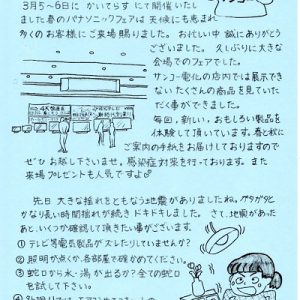 サンコー
3月5〜6日に かいてらす にて開催いたし
ました春のパナソニックフェアは 天候にも恵まれ
多くのお客様にご来場賜りました。お忙しい中 誠にありがとう
ございました。 久しぶりに大きな
会場でのフェアでした。
サンコー電化の店内では展示でき
ないたくさんの商品を見ていた
だく事ができました。
毎回、新しい、おもしろい製品を
体験して頂いています。春と秋に
ご案内の手紙をお届けしておりますので
ぜひ お越し下さいませ。感染症対策を行っております。また
来場プレゼントも人気ですよ
先日 大きな揺れをともなう地震がありましたね。グラグラと
かなり長い時間揺れが続き ドキドキしました。さて、地震があった
あと、いくつか確認して頂きたい事がございます。
① テレビ等電気製品が ズレたりしていませんか?
② 照明が点くか、各部屋で確かめてください。
③ 蛇口から水・湯が出るか? 全ての蛇口
を試して下さい。